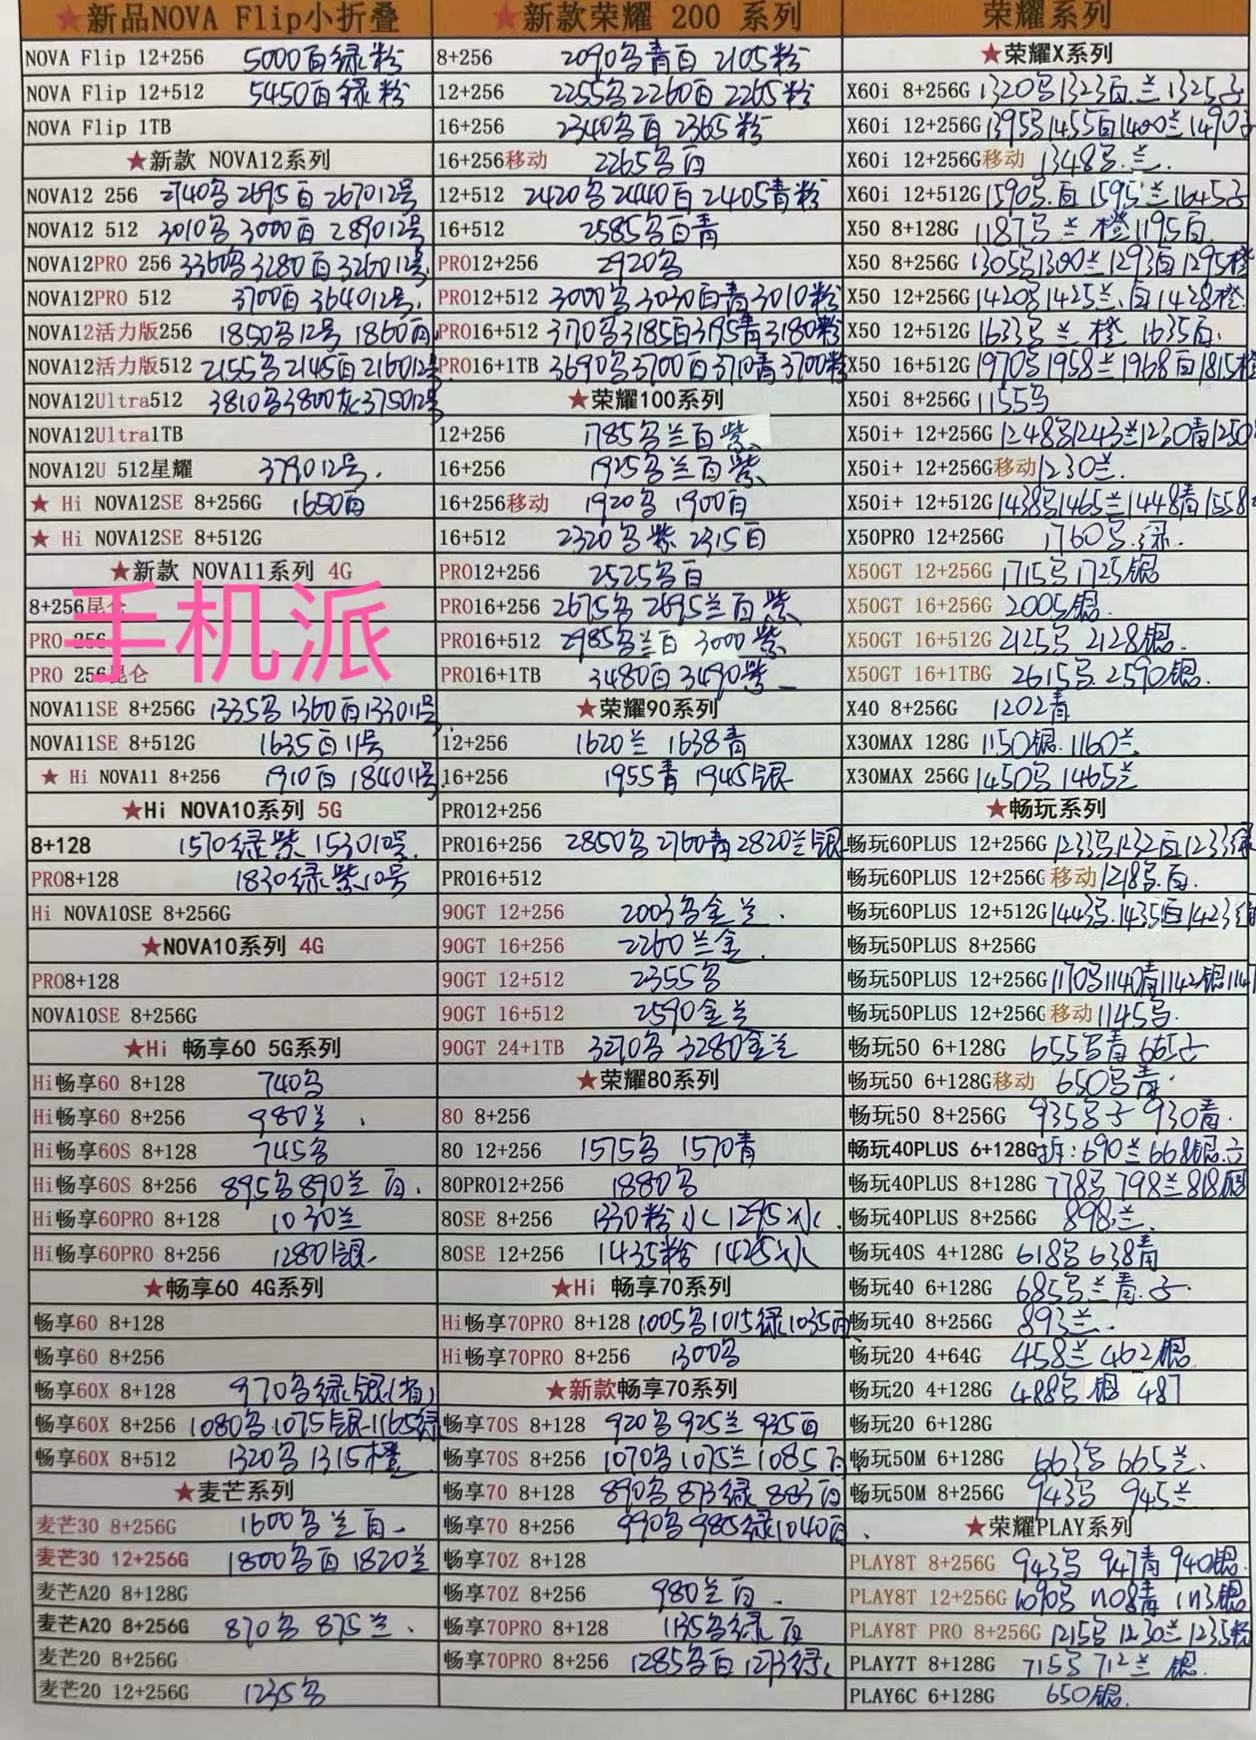 ★新品NOVA Flip小折叠
NOVA Flip 12+256 5000白绿粉
NOVA Flip 12+512 5450白绿粉
NOVA Flip 1TB
★新款 NOVA12系列
NOVA12 256 2740 2695白 2670 12号
NOVA12 512 3010 3000白 2890 12号
NOVA12PRO 256 3360 3280白 3260 12号
NOVA12PRO 512 3700白 3640 12号
NOVA12活力版256 1850 12号 1860白
NOVA12活力版512 2155 2145白 2160 12号
NOVA12Ultra512 3810 3800灰 3750 12号
NOVA12Ultra1TB
NOVA12U 512星耀 3790 12号
★ Hi NOVA12SE 8+256G 1650白
★ Hi NOVA12SE 8+512G
★新款 NOVA11系列 4G
8+256昆仑
PRO 256
PRO 256昆仑
手机派
NOVA11SE 8+256G 1335 1360白 1330 11号
NOVA11SE 8+512G 1635白 11号
★ Hi NOVA11 8+256 1910白 1840 11号
★Hi NOVA10系列 5G
8+128 1570绿紫 1530 10号
PRO8+128 1830绿紫 10号
Hi NOVA10SE 8+256G
★NOVA10系列 4G
PRO8+128
NOVA10SE 8+256G
★Hi 畅享60 5G系列
Hi畅享60 8+128 740
Hi畅享60 8+256 980兰
Hi畅享60S 8+128 745
Hi畅享60S 8+256 895 890兰 白
Hi畅享60PRO 8+128 1030兰
Hi畅享60PRO 8+256 1280银
★畅享60 4G系列
畅享60 8+128
畅享60 8+256
畅享60X 8+128 970 绿银
畅享60X 8+256 1080 1075银 1165绿
畅享60X 8+512 1320 1315橙
★麦芒系列
麦芒30 8+256G 1600 兰白
麦芒30 12+256G 1800 白 1820兰
麦芒A20 8+128G
麦芒A20 8+256G 870 875兰
麦芒20 8+256G
麦芒20 12+256G 1235
★新款荣耀 200 系列
8+256 2090 青白 2105粉
12+256 2255 2260白 2265粉
16+256 2340 白 2365粉
16+256移动 2265 白
12+512 2420 2440白 2405青粉
16+512 2585 白青
PRO12+256 2920
PRO12+512 3000 3030白青 3010粉
PRO16+512 3170 3185白 3195青 3180粉
PRO16+1TB 3690 3700白 3710青 3700粉
★荣耀100系列
12+256 1785 兰白紫
16+256 1925 兰白紫
16+256移动 1920 1900白
16+512 2320 紫 2315白
PRO12+256 2525 白
PRO16+256 2675 2695兰白紫
PRO16+512 2985 兰白 3000紫
PRO16+1TB 3480白 3490紫
★荣耀90系列
12+256 1620兰 1638青
16+256 1955青 1945银
PRO12+256
PRO16+256 2850 2760青 2820兰银
PRO16+512
90GT 12+256 2003 金兰
90GT 16+256 2260兰金
90GT 12+512 2355
90GT 16+512 2590金兰
90GT 24+1TB 3270 3280金兰
★荣耀80系列
80 8+256
80 12+256 1575 1570青
80PRO12+256 1880
80SE 8+256 1330粉 1295冰
80SE 12+256 1435粉 1425冰
★Hi 畅享70系列
Hi畅享70PRO 8+128 1005 1015绿 1035白
Hi畅享70PRO 8+256 1300
★新款畅享70系列
畅享70S 8+128 920 925兰 935白
畅享70S 8+256 1070 1075兰 1085白
畅享70 8+128 890 873绿 883白
畅享70 8+256 990 985绿 1040白
畅享70Z 8+128
畅享70Z 8+256 980兰白
畅享70PRO 8+128 1135 绿白
畅享70PRO 8+256 1285 白 1273绿
荣耀系列
★荣耀X系列
X60i 8+256G 1320 1323白兰 1325
X60i 12+256G 1395 1455白 1400兰 1490
X60i 12+256G移动 1348 兰
X60i 12+512G 1590 白 1595兰 1645
X50 8+128G 1187 兰橙 1195白
X50 8+256G 1305 1300兰 1293白 1295橙
X50 12+256G 1420 1425兰白 1428橙
X50 12+512G 1633 兰橙 1635白
X50 16+512G 1970 1958兰 1968白 1815橙
X50i 8+256G 1155
X50i+ 12+256G 1248 1243兰 1230青 1250
X50i+ 12+256G移动 1230兰
X50i+ 12+512G 1438 1465兰 1448青 1558
X50PRO 12+256G 1760 绿
X50GT 12+256G 1715 1725银
X50GT 16+256G 2005银
X50GT 16+512G 2125 2128银
X50GT 16+1TBG 2615 2590银
X40 8+256G 1202青
X30MAX 128G 1150银 1160兰
X30MAX 256G 1450 1465兰
★畅玩系列
畅玩60PLUS 12+256G 1233 1232白 1233绿
畅玩60PLUS 12+256G 移动 1218 白
畅玩60PLUS 12+512G 1443 1435白 1423绿
畅玩50PLUS 8+256G
畅玩50PLUS 12+256G 1170 1140青 1142银
畅玩50PLUS 12+256G 移动 1145
畅玩50 6+128G 655 青 665
畅玩50 6+128G移动 650 青
畅玩50 8+256G 935 930青
畅玩40PLUS 6+128G 拆:690兰 668银
畅玩40PLUS 8+128G 778 798兰 818银
畅玩40PLUS 8+256G 898兰
畅玩40S 4+128G 618 638青
畅玩40 6+128G 685 兰青
畅玩40 8+256G 893兰
畅玩20 4+64G 458兰 462银
畅玩20 4+128G 488 银 487
畅玩20 6+128G
畅玩50M 6+128G 663 665兰
畅玩50M 8+256G 943 945兰
★荣耀PLAY系列
PLAY8T 8+256G 943 947青 940银
PLAY8T 12+256G 1090 1108青 1113银
PLAY8T PRO 8+256G 1215 1230兰 1235粉
PLAY7T 8+128G 715 712兰 银
PLAY6C 6+128G 650银